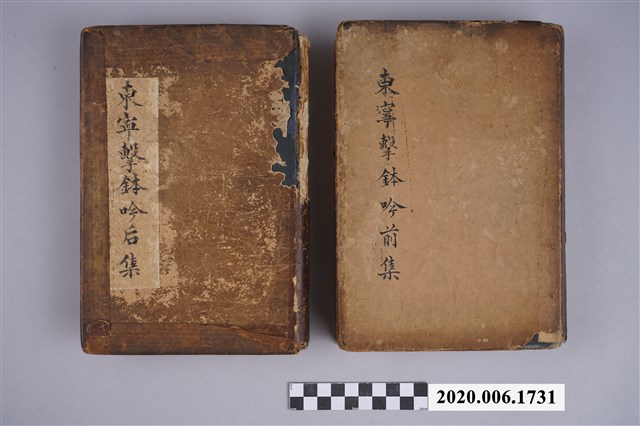 東寧擊鉢吟后集
東寧擊鉢吟前集
2020.006.1731